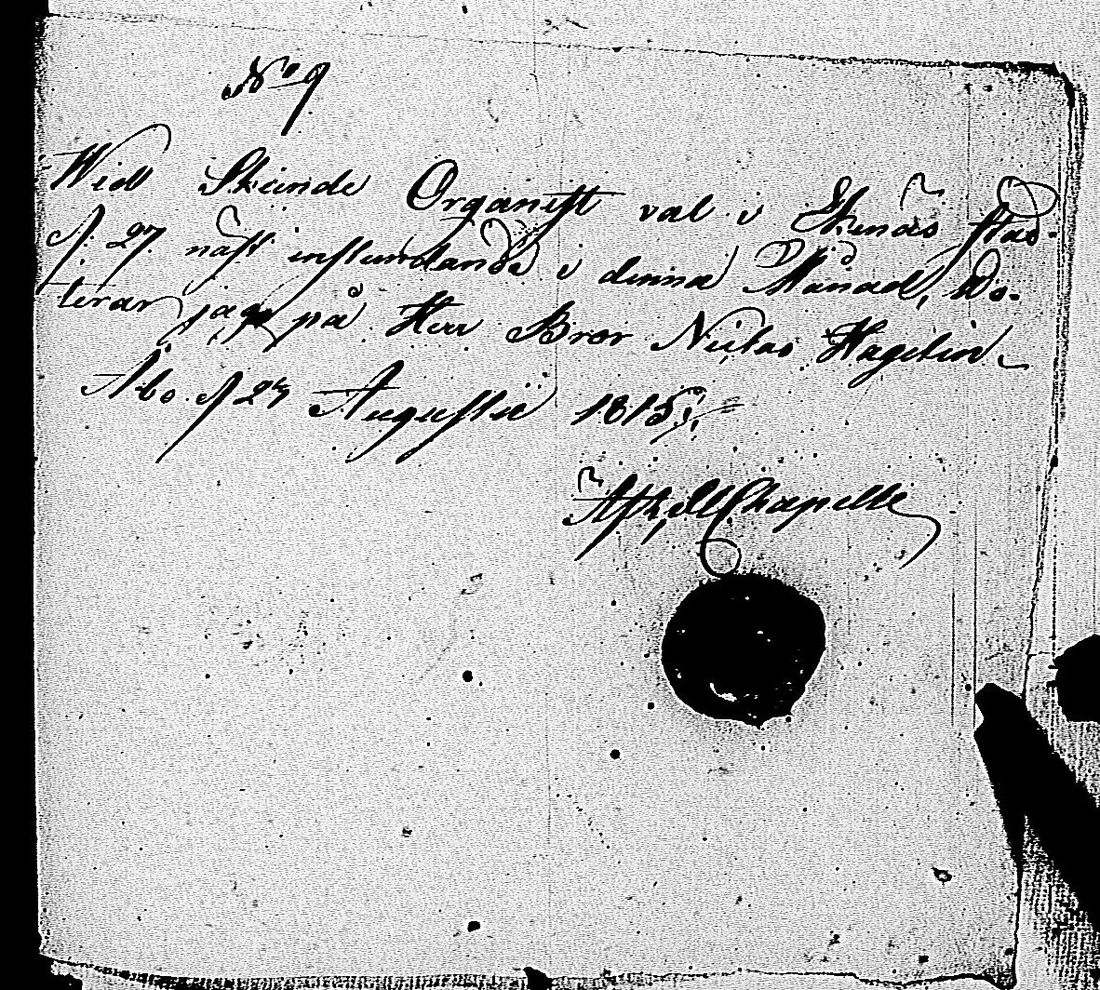 No 9
Wid Skeende Organist val i Ekenäs stad
d. 27 näst instundande i denna Månad, Wo-
terar jag på Herr Bror Niclas Hagelin
Åbo d 23 Augustii 1815,
Chapelle